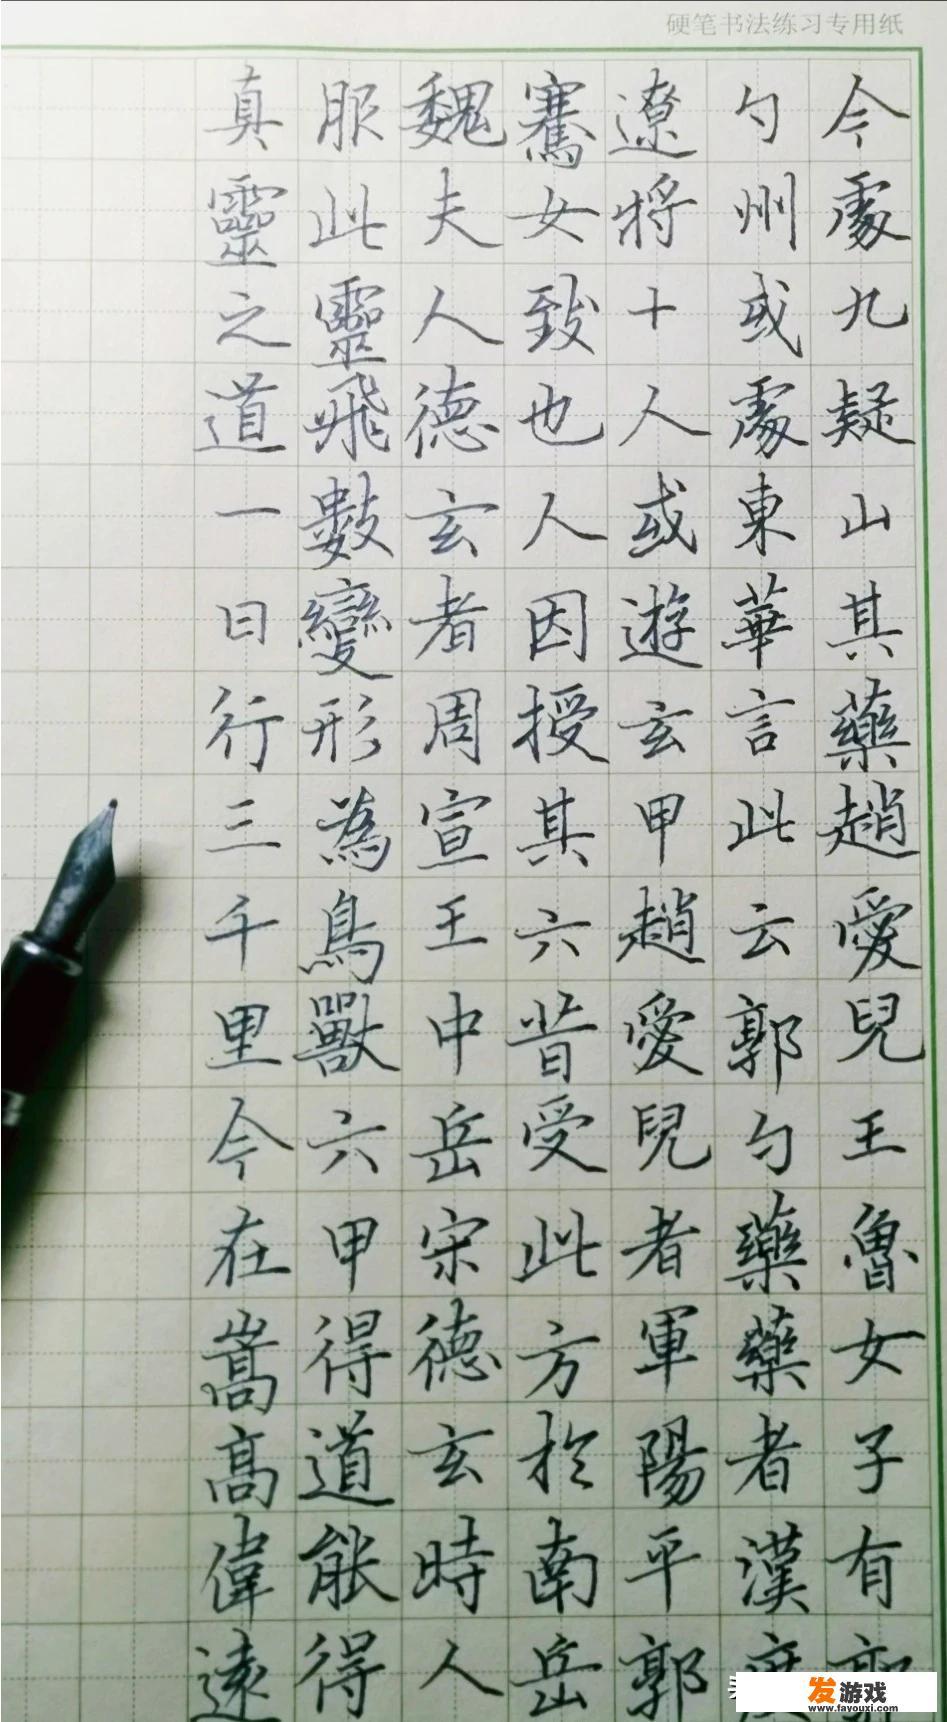 硬笔书法练习专用纸
今處九疑山其藥趙愛兒王魯女子有郭
勺州或處東華言此云郭勺藥藥者漢度
遼將十人或遊玄甲趙愛兒者軍陽平郭
騫女致也人因授其六昔受此方於南岳
魏夫人德玄者周宣王中岳宋德玄時人
服此靈飛數變形為鳥獸六甲得道能得
真靈之道一日行三千里今在嵩高偉遠
发游戏
www.fayouxi.com